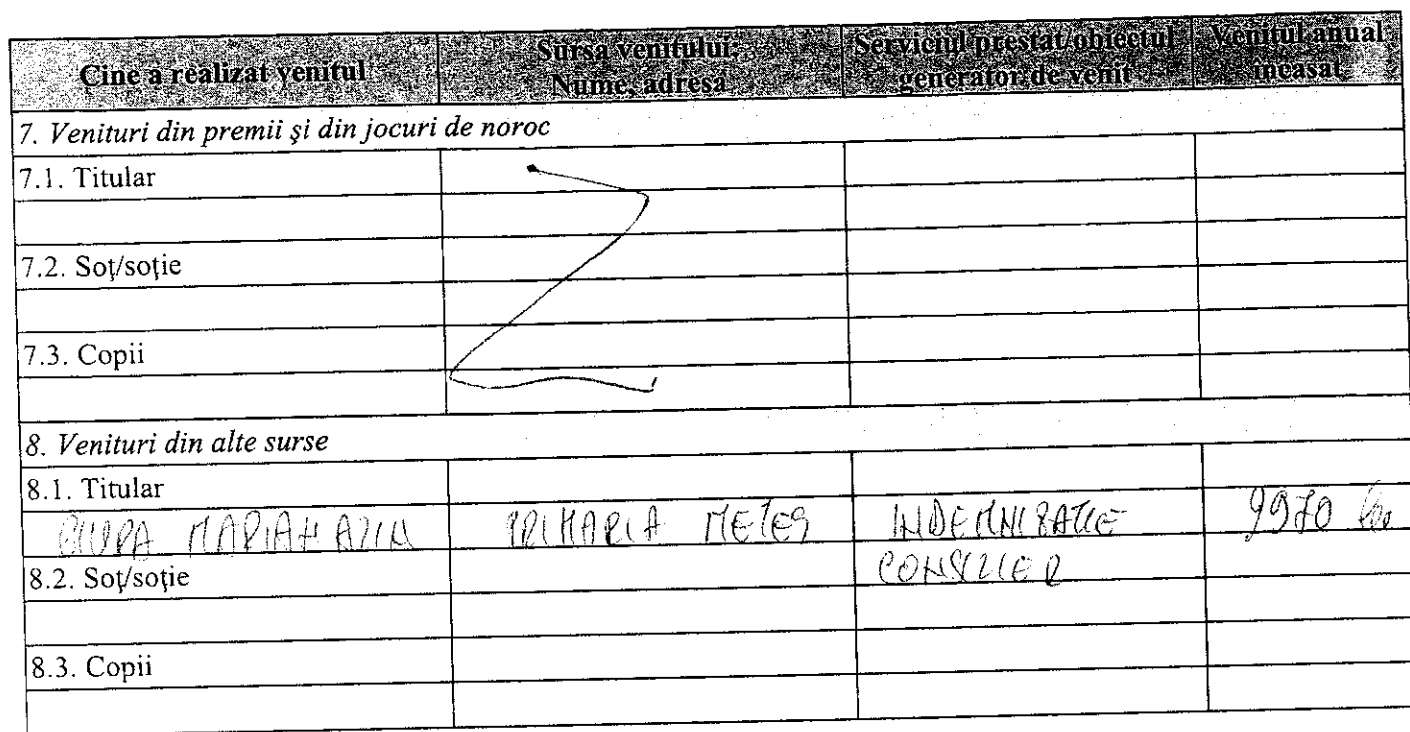 Cine a realizat venitul
Sursa venitului:
Nume, adresa
Serviciul prestat/obiectul
generator de venit
Venitul anual
încasat
7. Venituri din premii şi din jocuri de noroc
7.1. Titular
7.2. Soţ/soţie
7.3. Copii
8. Venituri din alte surse
8.1. Titular
PRIMARIA METES
INDEMNIZATIE
CONSILIER
9970 lei
8.2. Soţ/soţie
8.3. Copii